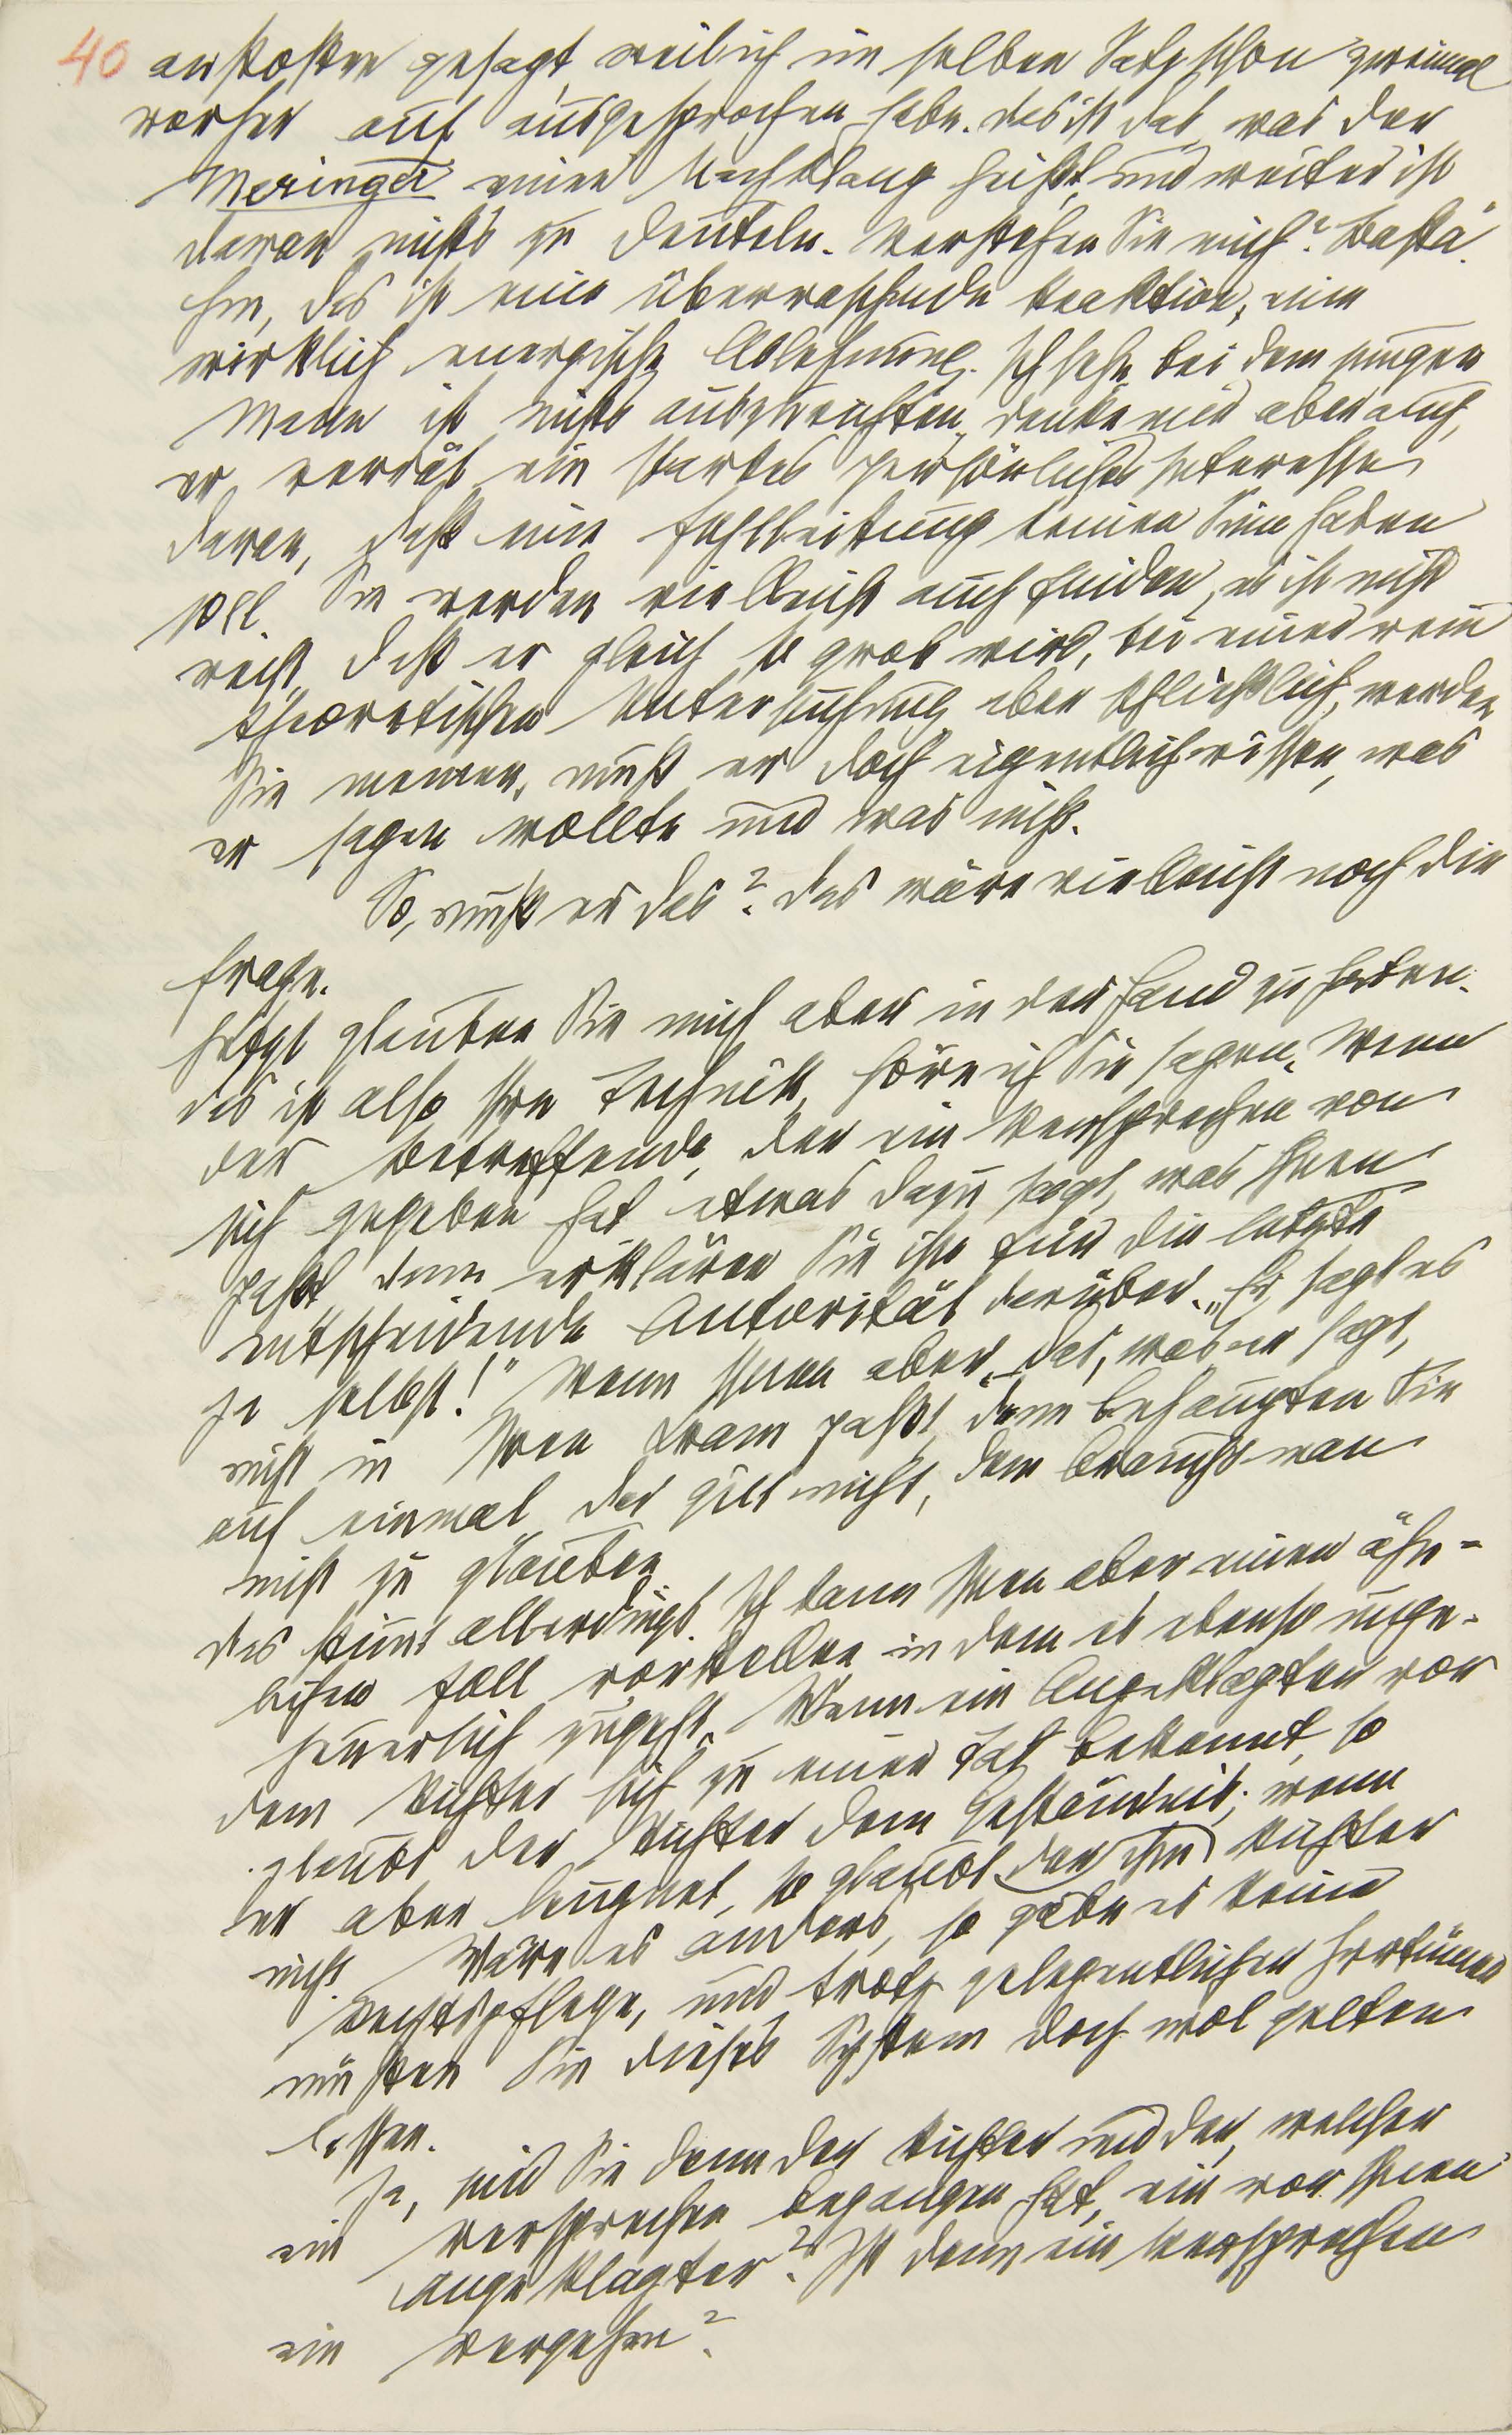 40 anstoßen gesagt, weil ich im selben Satz schon zweimal
vorher auf ausgesprochen habe. das ist das was der
Meringer einen Nachklang heißt, und weiter ist
daran nichts zu deuteln. Verstehen Sie mich? Basta.
hm, das ist eine überraschende Reaktion, eine
wirklich energische Ablehnung. Ich sehe, bei dem jungen
Mann ist nichts auszurichten, denke mir aber auch,
er verrät ein starkes persönliches Interesse
daran, daß eine Fehlleistung keinen Sinn haben
soll. Sie werden vielleicht auch finden, es ist nicht
recht, daß er gleich so grob wird, bei einer rein
theoretischen Untersuchung aber schließlich, werden
Sie meinen, muß er doch eigentlich wissen, was
er sagen wollte und was nicht.
So, muß er das? das wäre vielleicht noch die
Frage.
Jetzt glauben Sie mich aber in der Hand zu haben.
das ist also Ihre Technik, höre ich Sie sagen. Wenn
der Betreffende, der ein Versprechen von
sich gegeben hat etwas dazu sagt, was Ihnen
paßt dann erklären Sie ihn für die letzte
entscheidende Autorität darüber. „Er sagt es
ja selbst!" Wenn Ihnen aber das, was er sagt,
nicht in Ihren Kram paßt, dann behaupten Sie
auf einmal der gilt nicht, dem braucht man
nicht zu glauben.
das stimmt allerdings. Ich kann Ihnen aber einen ähn=
lichen Fall vorstellen in dem es ebenso unge-
heuerlich zugeht. Wenn ein Angeklagter vor
dem Richter sich zu einer Tat bekennt, so
glaubt der Richter dem Geständnis; wenn
er aber leugnet, so glaubt der ihm Richter
nicht. Wäre es anders, so gäbe es keine
Rechtspflege, und trotz gelegentlicher Irrtümer
müssen Sie dieses System doch wol gelten
lassen.
Ja, sind Sie denn der Richter und der, welcher
ein Versprechen begangen hat, ein vor Ihnen
Angeklagter? Ist denn ein Versprechen
ein Vergehen?